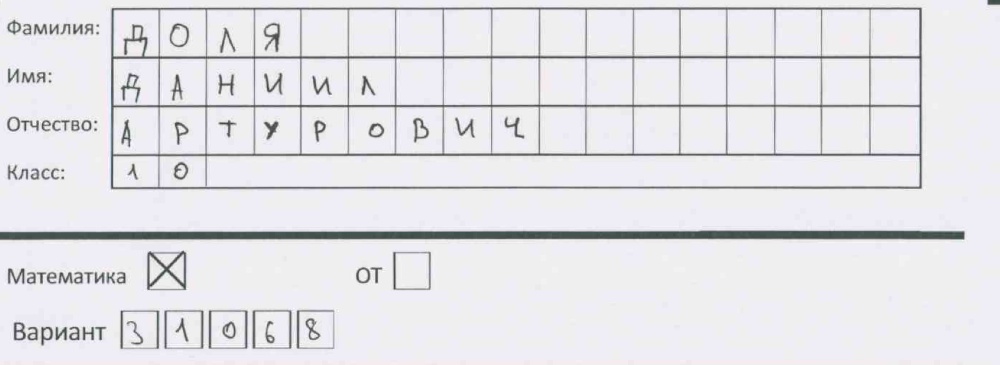 Фамилия: ДОЛЯ
Имя: ДАНИИЛ
Отчество: АРТУРОВИЧ
Класс: 10
Математика ☒ ОТ ☐
Вариант 31068